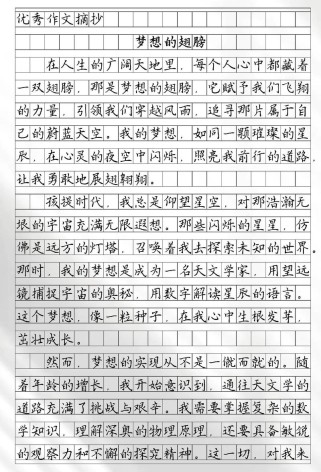 优秀作文摘抄
梦想的翅膀
在人生的广阔天地里，每个人心中都藏着
一双翅膀，那是梦想的翅膀，它赋予我们飞翔
的力量，引领我们穿越风雨，追寻那片属于自
己的蔚蓝天空。我的梦想，如同一颗璀璨的星
辰，在心灵的夜空中闪烁，照亮我前行的道路，
让我勇敢地展翅翱翔。
孩提时代，我总是仰望星空，对那浩瀚无
垠的宇宙充满无限遐想。那些闪烁的星星，仿
佛是远方的灯塔，召唤着我去探索未知的世界。
那时，我的梦想是成为一名天文学家，用望远
镜捕捉宇宙的奥秘，用数字解读星辰的语言。
这个梦想，像一粒种子，在我心中生根发芽，
茁壮成长。
然而，梦想的实现从不是一蹴而就的。随
着年龄的增长，我开始意识到，通往天文学的
道路充满了挑战与艰辛。我需要掌握复杂的数
学知识，理解深奥的物理原理，还要具备敏锐
的观察力和不懈的探究精神。这一切，对我来